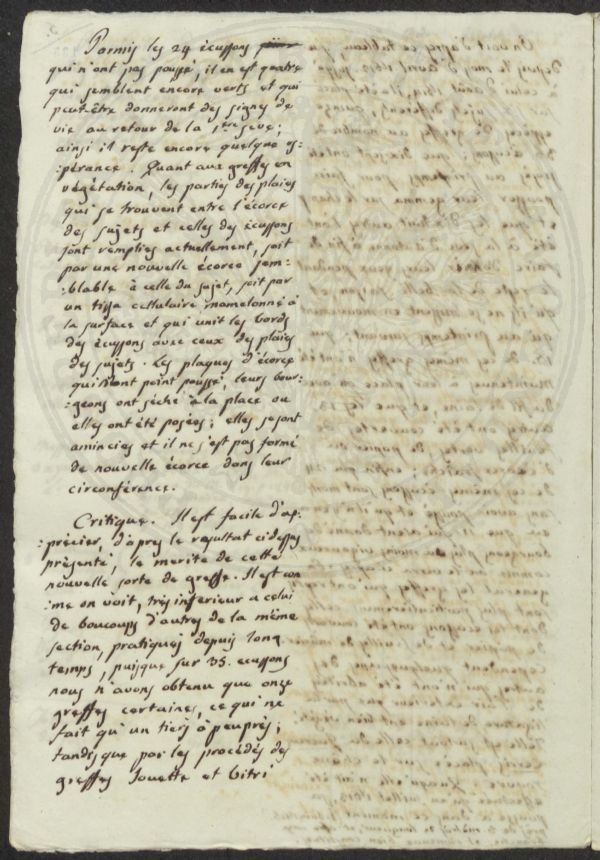 Parmis les 24 écussons
qui n'ont pas poussé, il en est quatre
qui semblent encore verts et qui
peut-être donneront des signes de
vie au retour de la 1ere seve;
ainsi il reste encore quelque es-
:pérance. Quant aux greffes en
végétation, les parties des plaies
qui se trouvent entre l'écorce
des sujets et celles des écussons
sont remplies actuellement, soit
par une nouvelle écorce sem-
:blable à celle du sujet, soit par
un tissu cellulaire mamelonné à
la surface et qui unit les bords
des écussons avec ceux des plaies
des sujets. Les plaques d'écorce
qui n'ont point poussé, leurs bour-
:geons ont séché à la place ou
elles ont été posées; elles se sont
amincies et il ne s'est pas formé
de nouvelle écorce dans leur
circonférence.
Critique. Il est facile d'ap-
:précier, d'après le resultat ci dessus
présenté, le merite de cette
nouvelle sorte de greffe. Il est com
:me on voit, très inferieur a celui
de boucoups d'autres de la même
section, pratiqués depuis long
temps, puisque sur 35. ecussons
nous n'avons obtenu que onze
greffes certaines, ce qui ne
fait qu'un tiers à peuprès;
tandis que par les procédés des
greffes Jouette et Vitri